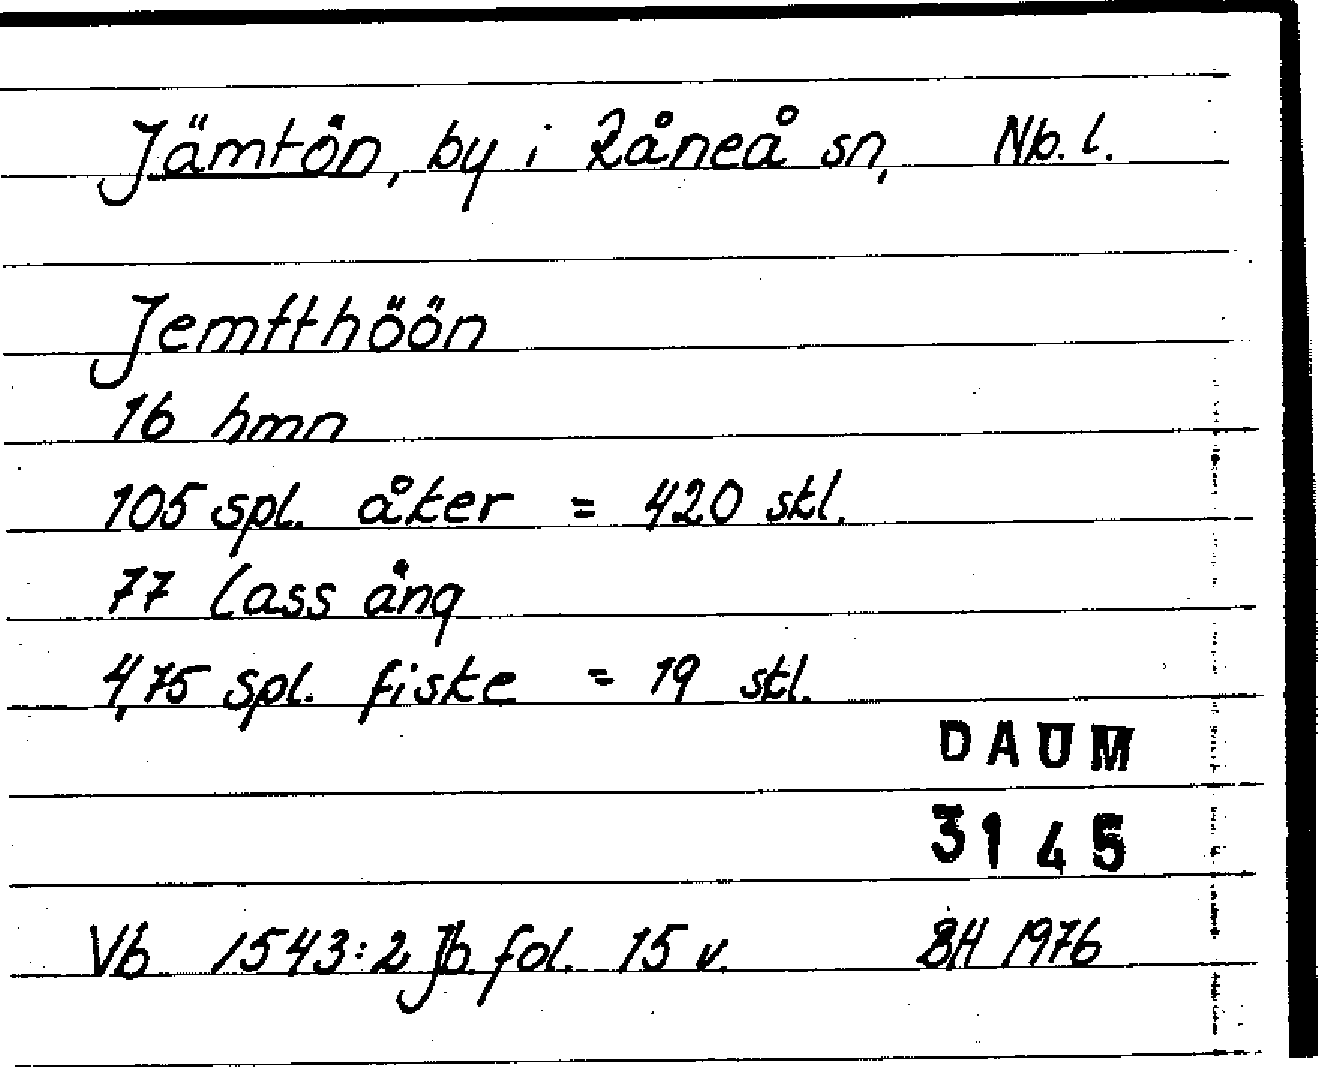 Jämtön, by i Råneå sn, Nb. l.
Jemtthöön
16 hmn
105 spl. åker = 420 skl.
77 lass äng
4,75 spl. fiske = 19 skl.
DAUM
3145
Vb 1543:2 Jb. fol. 15 v. BH 1976